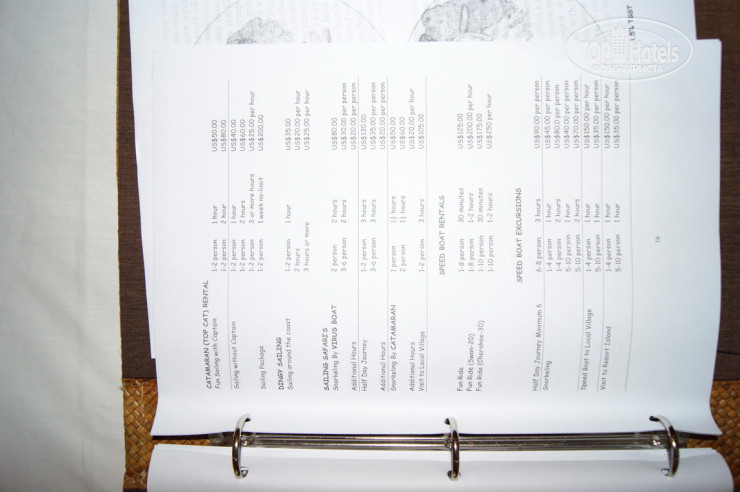 CATAMARAN (TOP CAT) RENTAL
Fun Sailing with Captain 1-2 person 1 hour US$50.00
1-2 person 2 hour US$80.00
Sailing without Captain 1-2 person 1 hour US$40.00
1-2 person 2 hours US$60.00
1-2 person 3 or more hours US$25.00 per hour
Sailing Package 1-2 person 1 week no-limit US$200.00
DINGY SAILING
Sailing around the coast 1-2 person 1 hour US$35.00
2 hours US$20.00 per hour
3 hours or more US$25.00 per hour
SAILING SAFARI'S
Snorkeling By VIRUS BOAT 2 person 2 hours US$80.00
3-6 person 2 hours US$30.00 per person
Additional Hours US$20.00 per person
Half Day Journey 1-2 person 3 hours US$130.00
3-6 person 3 hours US$35.00 per person
Additional Hours US$20.00 per person
Snorkeling By CATAMARAN 1 person 1½ hours US$50.00
2 person 1½ hours US$60.00
Additional Hours US$20.00 per hour
Visit to Local Village 1-2 person 3 hours US$105.00
SPEED BOAT RENTALS
Fun Ride 1-8 person 30 minutes US$125.00
Fun Ride (Swan-20) 1-8 person 1-2 hours US$200.00 per hour
Fun Ride (Cherokee-30) 1-10 person 30 minutes US$175.00
1-10 person 1-2 hours US$250 per hour
SPEED BOAT EXCURSIONS
Half Day Journey Minimum 6 6-8 person 3 hours US$90.00 per person
Snorkeling 1-4 person 1 hour US$45.00 per person
1-4 person 2 hours US$80.0 per person
5-10 person 1 hour US$40.00 per person
5-10 person 2 hours US$70.00 per person
Speed Boat to Local Village 1-4 person 1 hour US$150.00 per hour
5-10 person 1 hour US$35.00 per person
Visit to Resort Island 1-4 person 1 hour US$150.00 per hour
5-10 person 1 hour US$35.00 per person
16
TopHotels